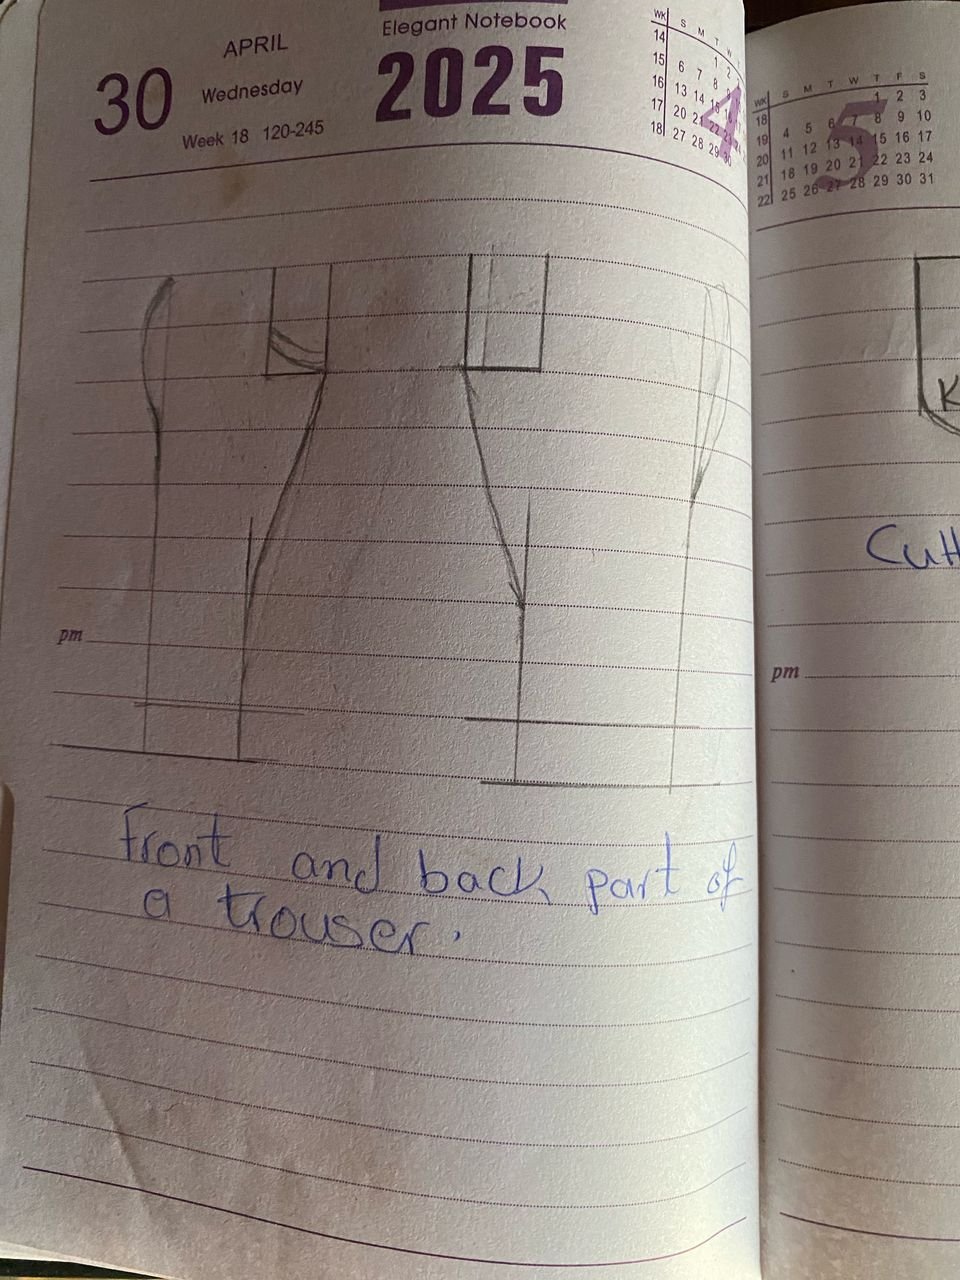 APRIL
30
Wednesday
Week 18 120-245
Elegant Notebook
2025
WK S M T W
14 1 2
15 6 7 8 9
16 13 14 15 16
17 20 21 22 23
18 27 28 29 30
4
pm
Front and back part of
a trouser.
WK S M T W T F S
18 1 2 3
19 4 5 6 7 8 9 10
20 11 12 13 14 15 16 17
21 18 19 20 21 22 23 24
22 25 26 27 28 29 30 31
5
K
pm